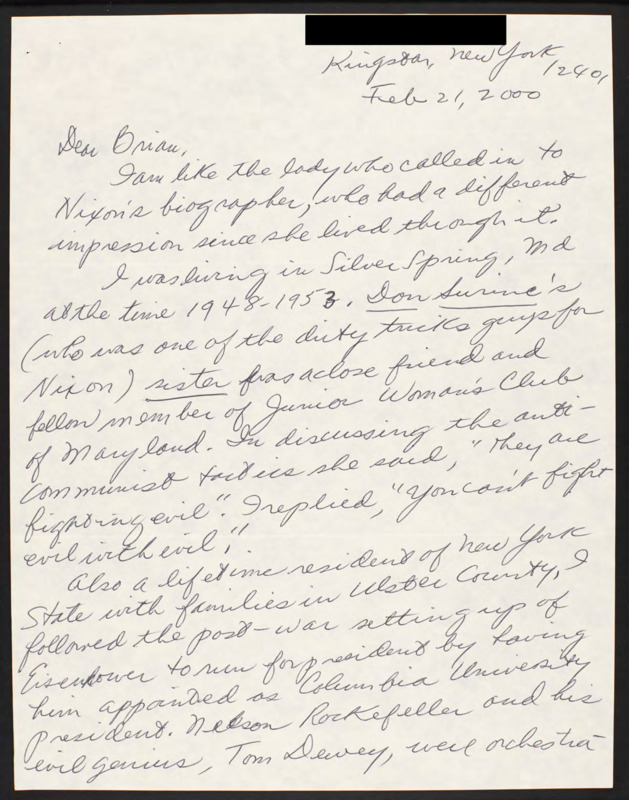 Kingston, New York
12401
Feb 21, 2000
Dear Brian,
I am like the lady who called in to
Nixon's biographer, who had a different
impression since she lived through it.
I was living in Silver Spring, Md
at the time 1948-1953. Don Surine's
(who was one of the dirty tricks guys for
Nixon) sister was a close friend and
fellow member of Junior Woman's Club
of Maryland. In discussing the anti-
communist tactics she said, "They are
fighting evil". I replied, "You can't fight
evil with evil".
Also a lifetime resident of New York
State with families in Ulster County, I
followed the post-war setting up of
Eisenhower to run for president by having
him appointed as Columbia University
president. Nelson Rockefeller and his
evil genius, Tom Dewey, were orchestra-